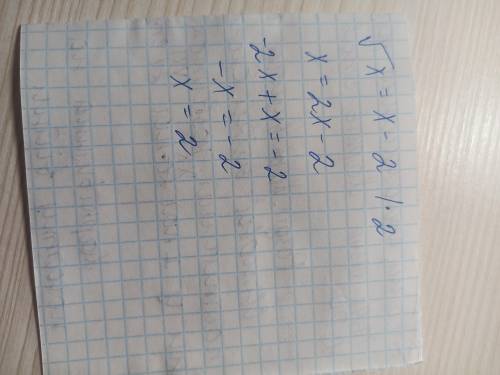 √x = x - 2 | · 2
x = 2x - 2
-2x + x = -2
-x = -2
x = 2